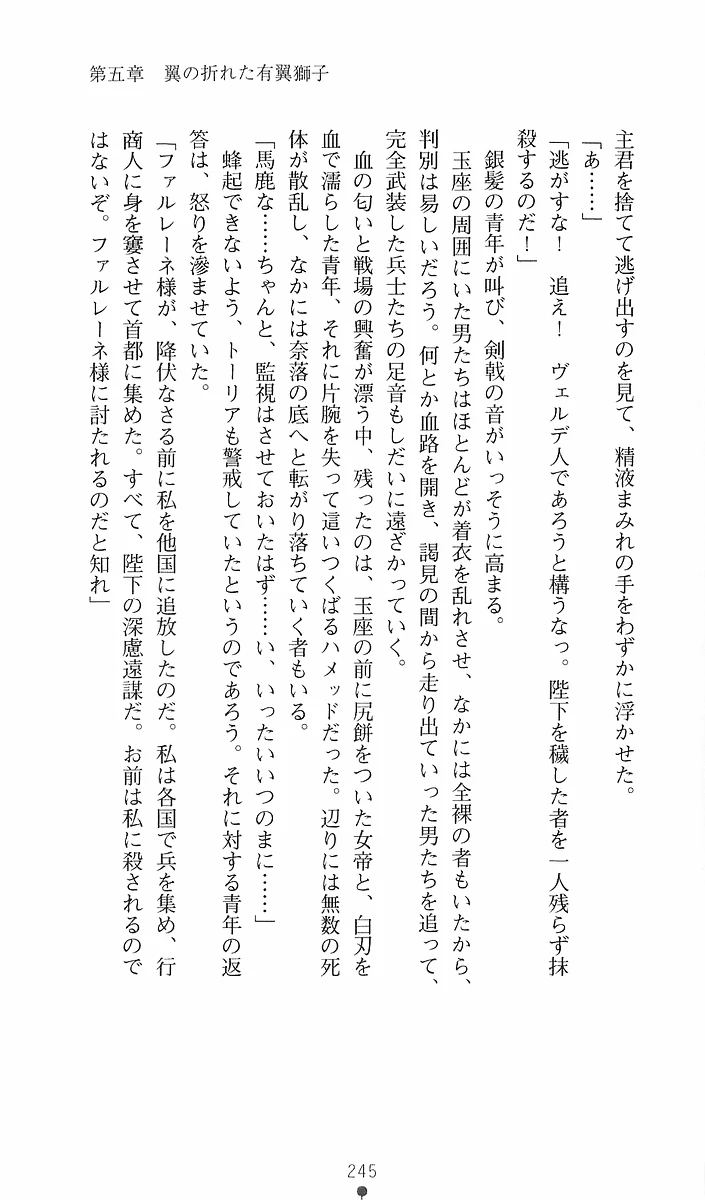 第五章　翼の折れた有翼獅子
主君を捨てて逃げ出すのを見て、精液まみれの手をわずかに浮かせた。
「あ……」
「逃がすな！　追え！　ヴェルデ人であろうと構うなっ。陛下を穢した者を一人残らず抹
殺するのだ！」
　銀髪の青年が叫び、剣戟の音がいっそうに高まる。
　玉座の周囲にいた男たちはほとんどが着衣を乱れさせ、なかには全裸の者もいたから、
判別は易しいだろう。何とか血路を開き、謁見の間から走り出ていった男たちを追って、
完全武装した兵士たちの足音もしだいに遠ざかっていく。
　血の匂いと戦場の興奮が漂う中、残ったのは、玉座の前に尻餅をついた女帝と、白刃を
血で濡らした青年、それに片腕を失って這いつくばるハメッドだった。辺りには無数の死
体が散乱し、なかには奈落の底へと転がり落ちていく者もいる。
「馬鹿な……ちゃんと、監視はさせておいたはず……い、いったいいつのまに……」
　蜂起できないよう、トーリアも警戒していたというのであろう。それに対する青年の返
答は、怒りを滲ませていた。
「ファルレーネ様が、降伏なさる前に私を他国に追放したのだ。私は各国で兵を集め、行
商人に身を窶させて首都に集めた。すべて、陛下の深慮遠謀だ。お前は私に殺されるので
はないぞ。ファルレーネ様に討たれるのだと知れ」
245